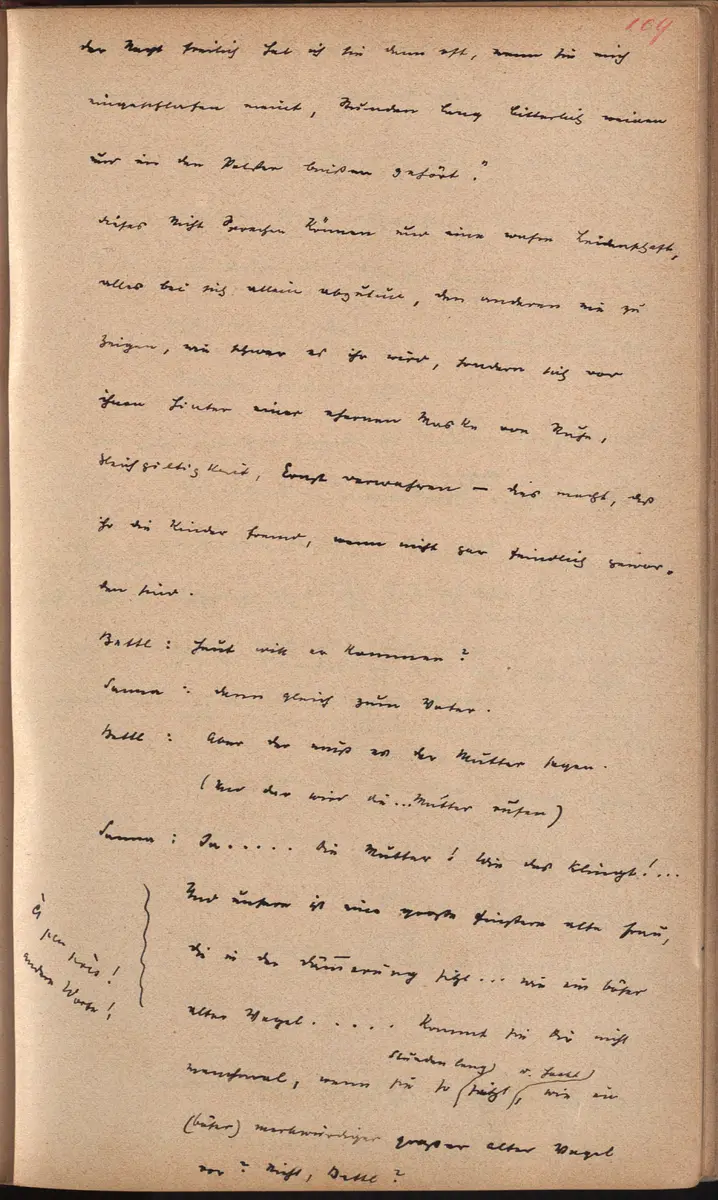 104
der Nacht freilich hab ich sie dann oft, wenn sie mich
eingeschlafen meint, Stunden lang bitterlich weinen
und in den Polster beißen gehört."
dieses Nicht Sprechen Können und eine wahre Leidenschaft,
alles bei sich allein abzutun, den anderen nie zu
zeigen, wie schwer es ihr wird, sondern sich vor
ihnen hinter einer ehernen Maske von Ruhe,
Gleichgiltigkeit, Ernst verwahren – dies macht, daß
ihr die Kinder fremd, wenn nicht gar feindlich gewor-
den sind.
Bettl: Heut will er kommen?
Sanna: dann gleich zum Vater.
Bettl: Aber der muß es der Mutter sagen.
(Und der wird die... Mutter rufen)
Sanna: Ja..... die Mutter! Wie das klingt!...
Und unsere ist eine große finstere alte Frau,
die in der Dämmerung sitzt... wie ein böser
alter Vogel..... Kommt sie dir nicht
Stunden lang
manchmal, wenn sie so sitzt, wie ein
(böser) merkwürdiger großer alter Vogel
vor? Nicht, Bettl?
à
peu près!
andere Worte!